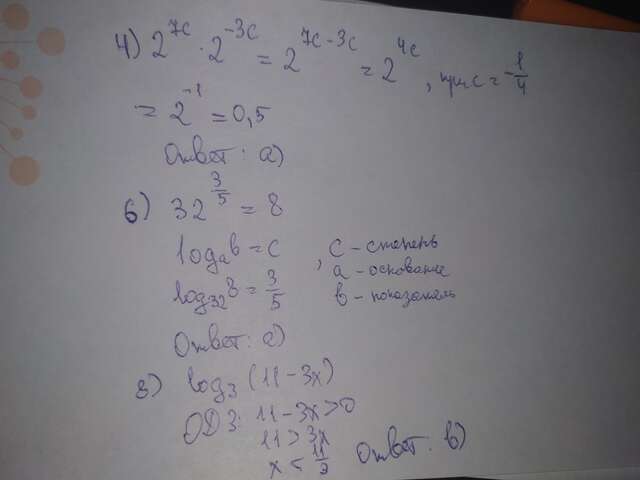 4) 2^{7c} · 2^{-3c} = 2^{7c-3c} = 2^{4c}, при c = -1/4
= 2^{-1} = 0,5
Ответ: а)
6) 32^{3/5} = 8
log_a b = c , c - степень
a - основание
log_{32} 8 = 3/5 b - показатель
Ответ: а)
8) log_3 (11 - 3x)
ОДЗ: 11 - 3x > 0
11 > 3x
x < 11/3 Ответ: b)